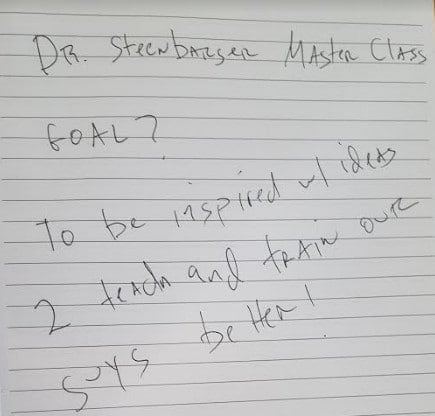 DR. Steenbarger Master Class
GOAL?
To be inspired w/ ideas
2 teach and train our
guys better!